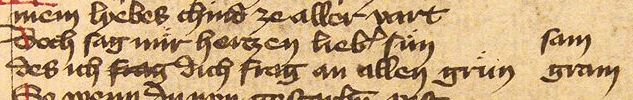 mein liebes chind ze aller vart
doch sag mir herczen lieb[er] sün sam
des ich frag dich frag an allen grün gram
So wenn du nun